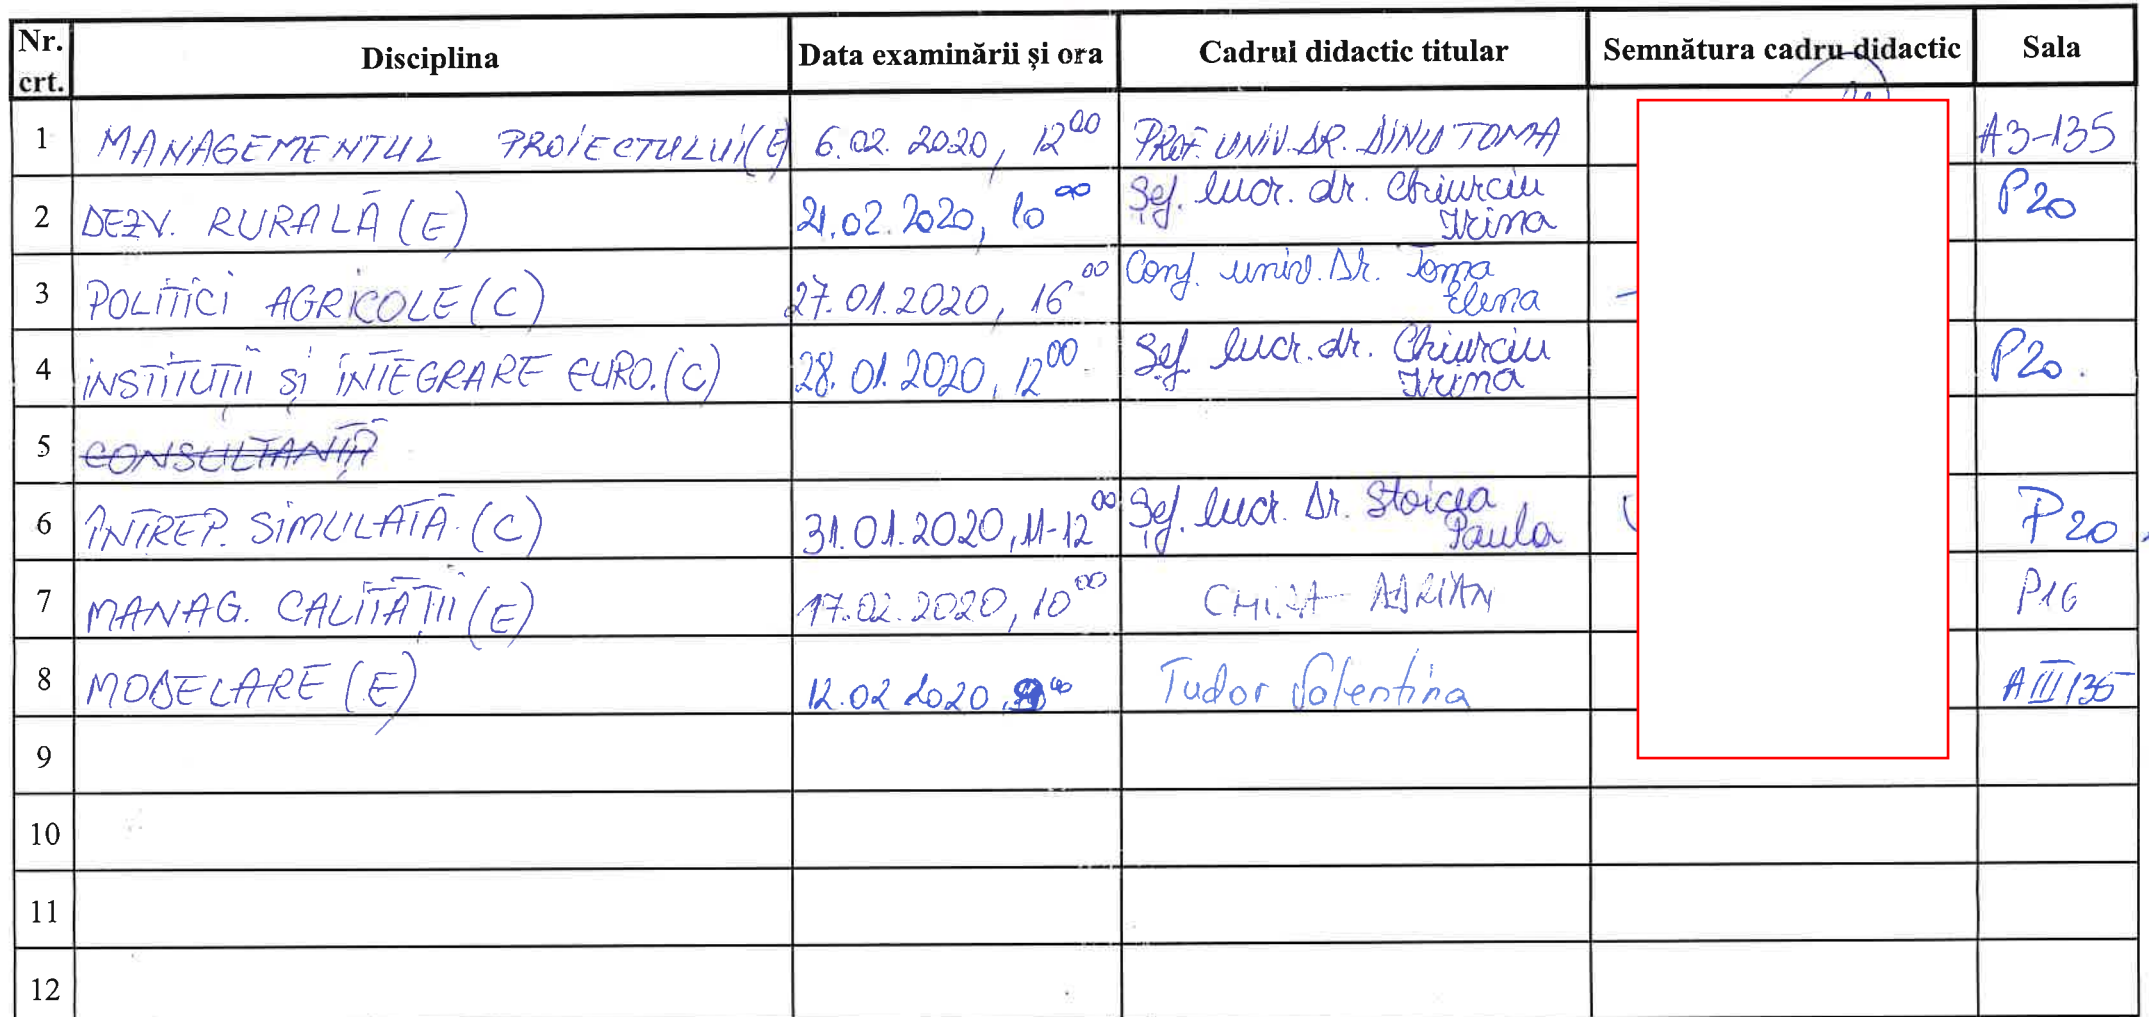 Nr. crt. Disciplina Data examinării și ora Cadrul didactic titular Semnătura cadru didactic Sala
1 MANAGEMENTUL PROIECTULUI(E) 6.02.2020, 12⁰⁰ PROF. UNIV. DR. DINU TOMA A3-135
2 DEZV. RURALĂ (E) 21.02.2020, 10⁰⁰ Șef. lucr. dr. Chiurciu Irina P20
3 POLITICI AGRICOLE (C) 27.01.2020, 16⁰⁰ Conf. univ. Dr. Toma Elena
4 INSTITUȚII ȘI INTEGRARE EURO.(C) 28.01.2020, 12⁰⁰ Șef. lucr. dr. Chiurciu Irina P20.
5 CONSULTANȚĂ
6 ÎNTREP. SIMULATĂ (C) 31.01.2020, 11-12⁰⁰ Șef. lucr. Dr. Stoicea Paula P20
7 MANAG. CALITĂȚII (E) 17.02.2020, 10⁰⁰ ADRIAN P16
8 MODELARE (E) 12.02 2020 Tudor Valentina A III 135
9
10
11
12